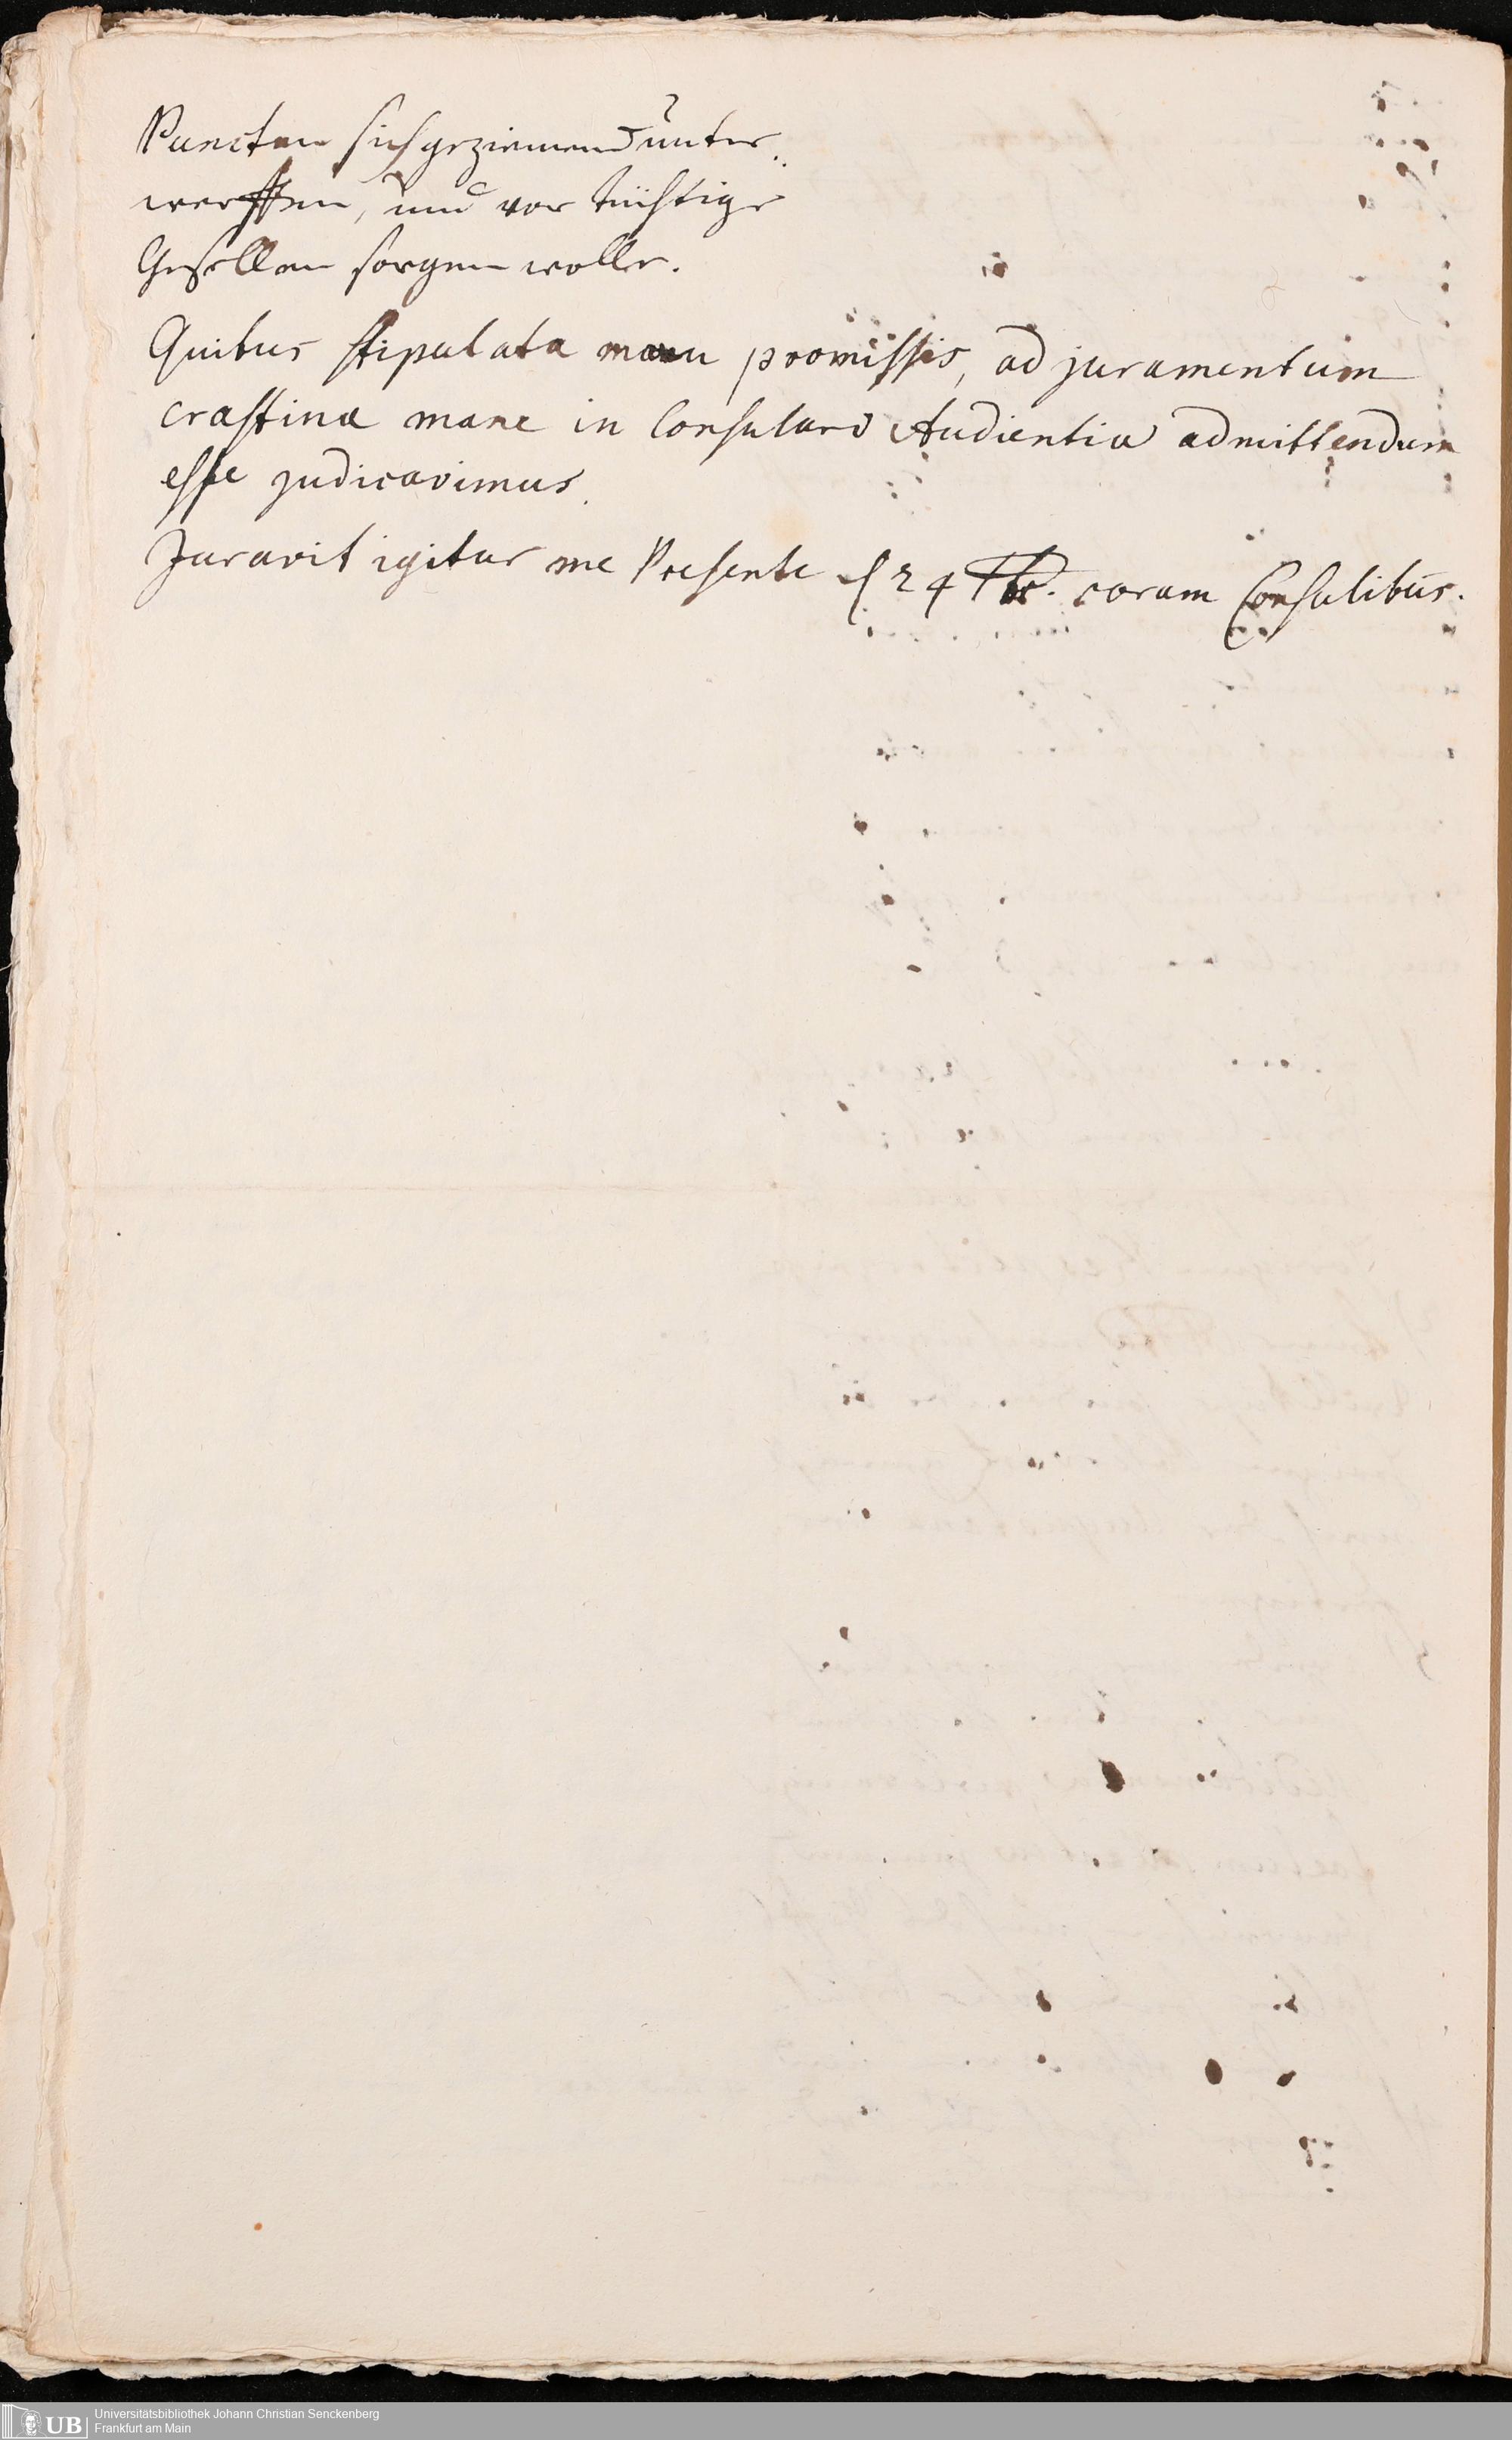 Puncten sich geziemend unter..
werffen, und vor tüchtige
Gesellen sorgen wolle.
Quibus stipulata manu promissis, ad juramentum
crastina mane in Consulari Audientia admittendum
esse judicavimus.
Juravit igitur me Presente d 24 coram Consulibus.
UB
Universitätsbibliothek Johann Christian Senckenberg
Frankfurt am Main